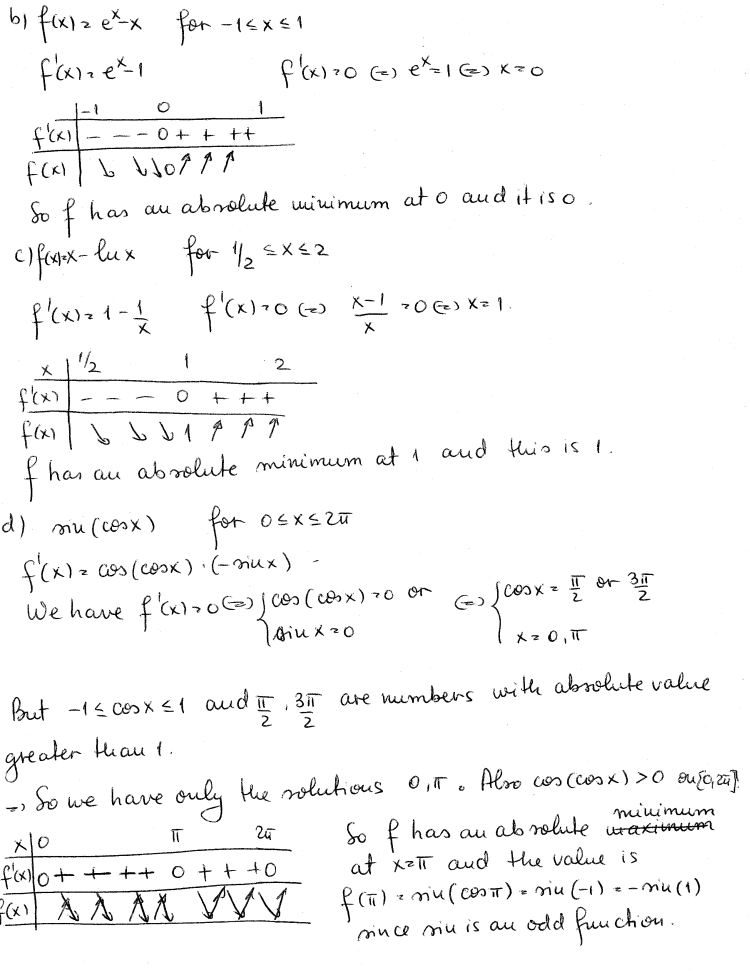 b) f(x) = e^x - x for -1 ≤ x ≤ 1
f'(x) = e^x - 1 f'(x) = 0 (=) e^x = 1 (=) x = 0
-1 0 1
f'(x) - - - 0 + + + +
f(x) ↘ ↘ ↘ 0 ↗ ↗ ↗
So f has an absolute minimum at 0 and it is 0.
c) f(x) = x - ln x for 1/2 ≤ x ≤ 2
f'(x) = 1 - 1/x f'(x) = 0 (=) (x-1)/x = 0 (=) x = 1.
x 1/2 1 2
f'(x) - - - 0 + + +
f(x) ↘ ↘ ↘ 1 ↗ ↗ ↗
f has an absolute minimum at 1 and this is 1.
d) sin(cos x) for 0 ≤ x ≤ 2π
f'(x) = cos(cos x) · (-sin x)
We have f'(x) = 0 (=) { cos(cos x) = 0 or (=) { cos x = π/2 or 3π/2
sin x = 0 x = 0, π
But -1 ≤ cos x ≤ 1 and π/2, 3π/2 are numbers with absolute value
greater than 1.
=> So we have only the solutions 0, π. Also cos(cos x) > 0 on [0, 2π].
x 0 π 2π
f'(x) 0 + + + + 0 + + + 0
f(x)
So f has an absolute ~~maximum~~ minimum
at x = π and the value is
f(π) = sin(cos π) = sin(-1) = -sin(1)
since sin is an odd function.